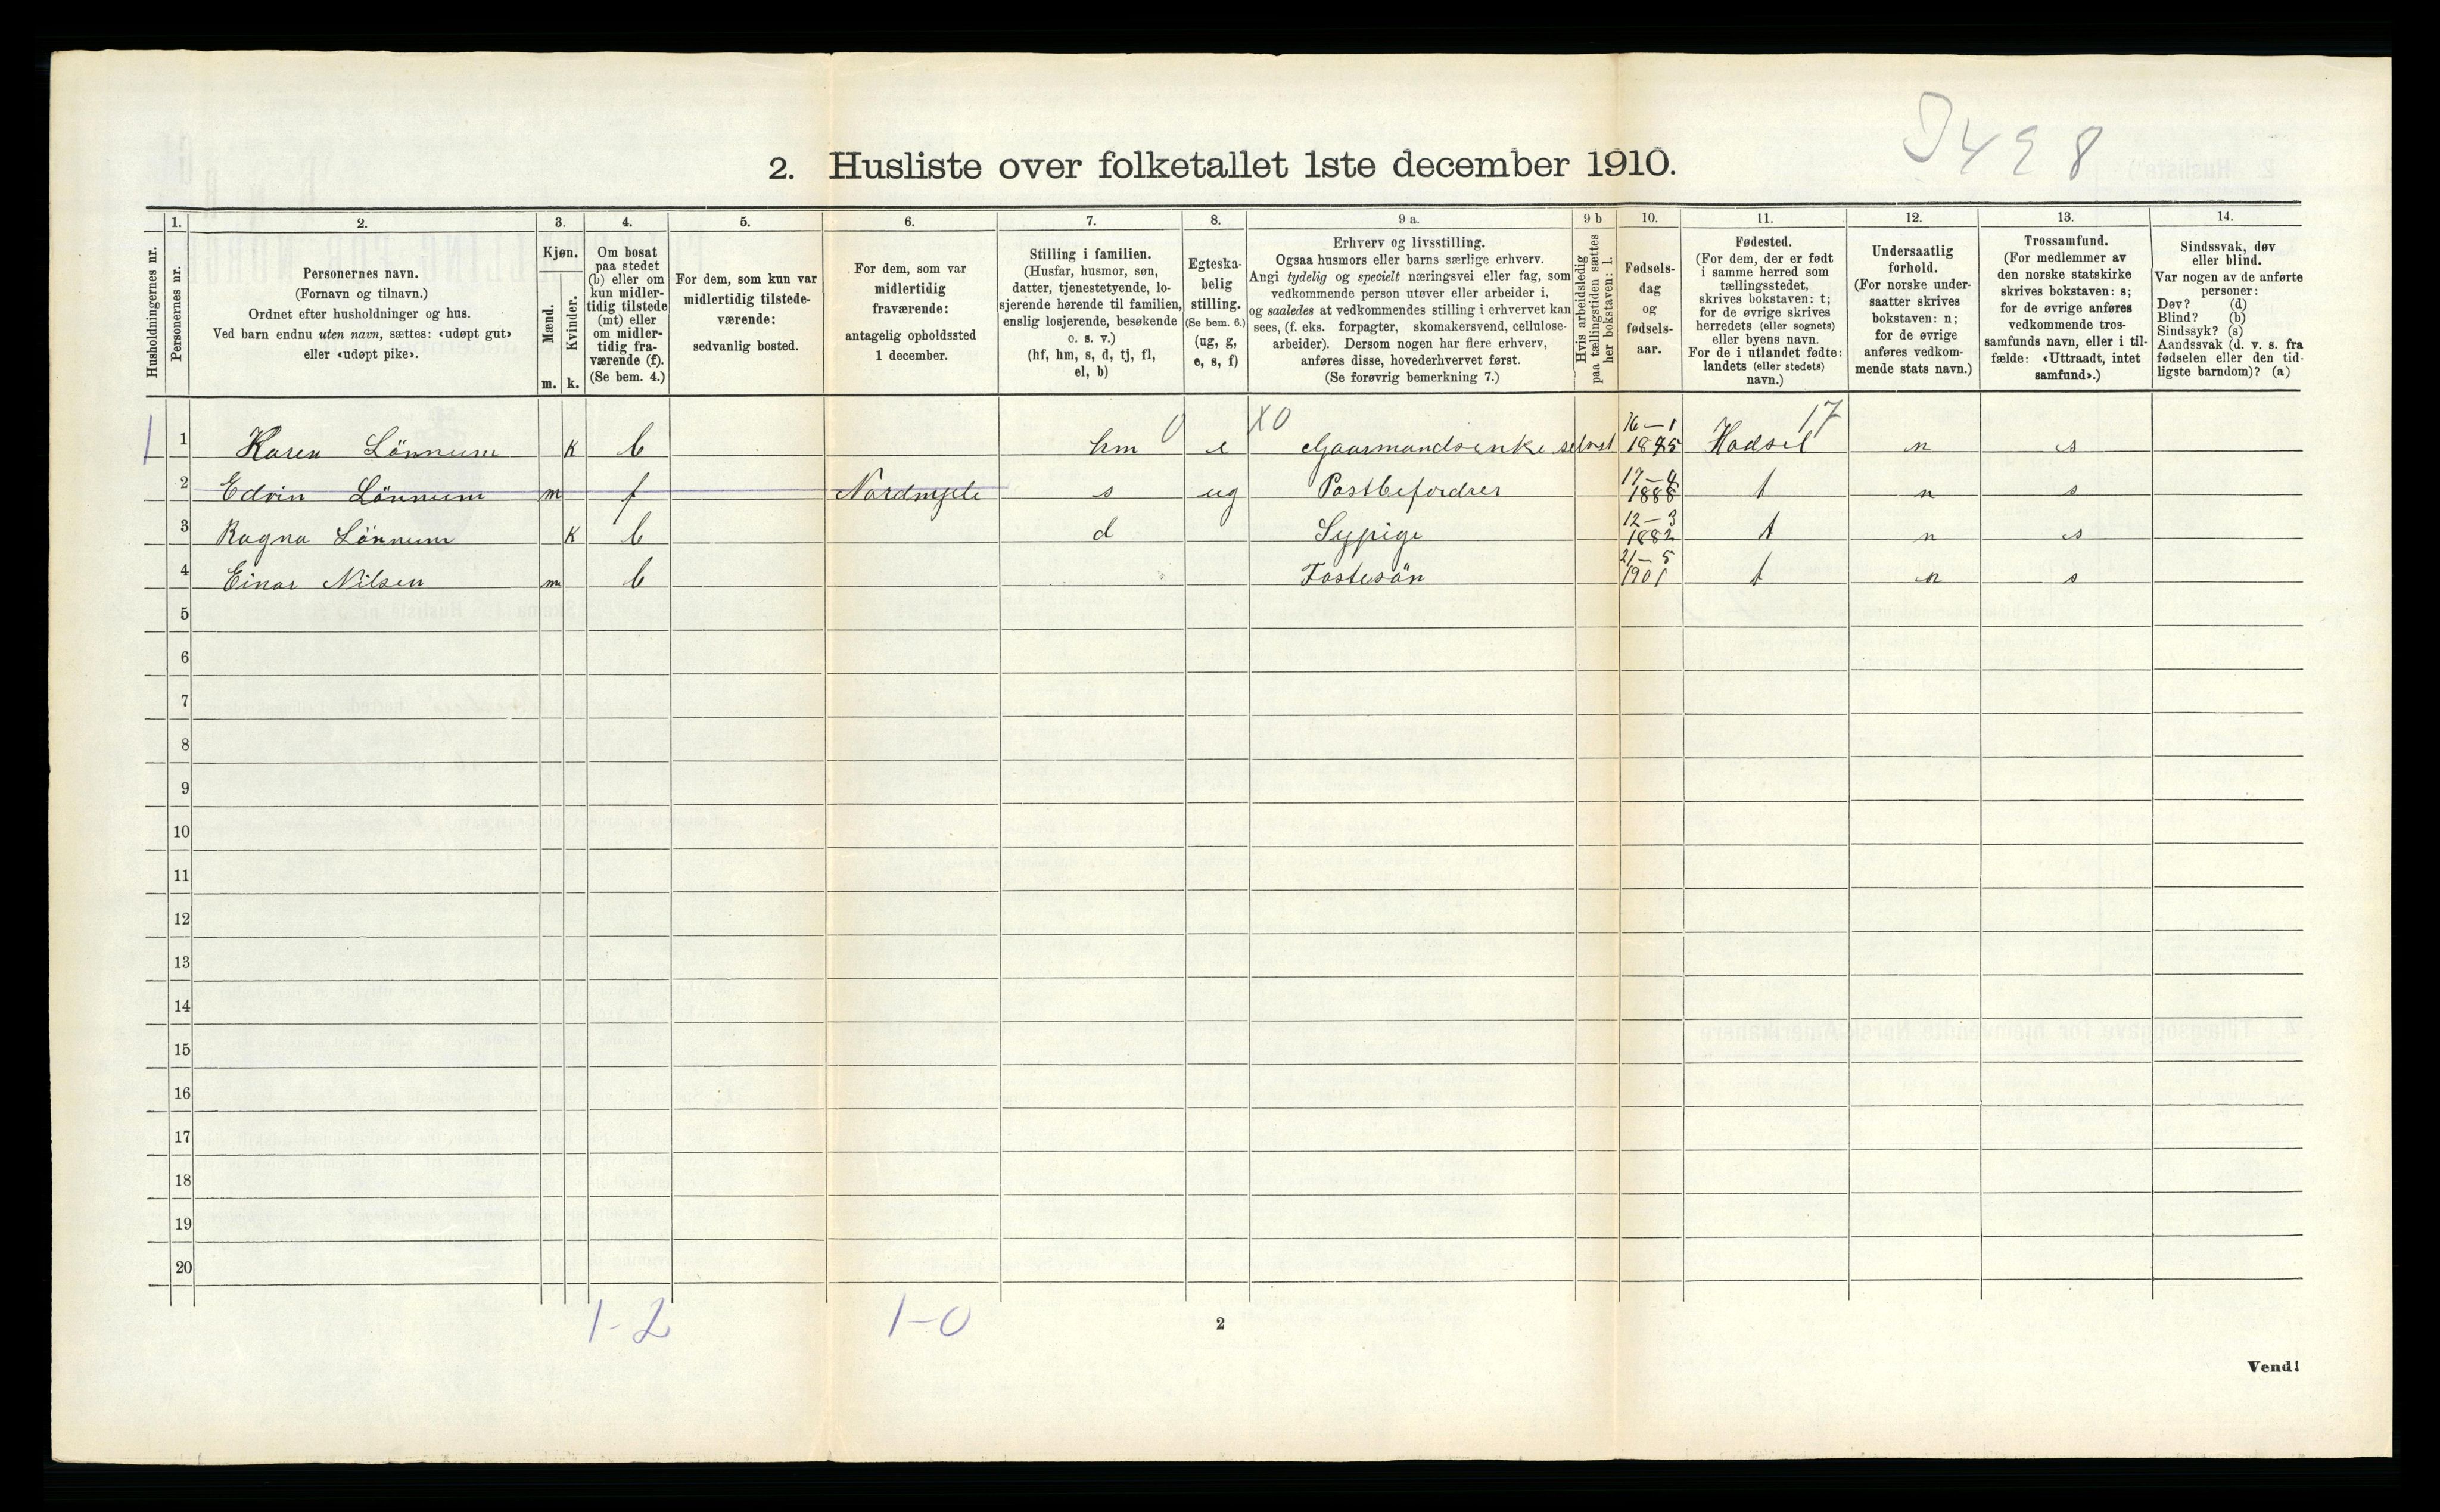 2. Husliste over folketallet 1ste december 1910.
Husholdningernes nr.
1.
Personernes nr.
2.
Personernes navn.
(Fornavn og tilnavn.)
Ordnet efter husholdninger og hus.
Ved barn endnu uten navn, sættes: «udøpt gut»
eller «udøpt pike».
3.
Kjøn.
Mænd.
m.
Kvinder.
k.
4.
Om bosat
paa stedet
(b) eller om
kun midler-
tidig tilstede
(mt) eller
om midler-
tidig fra-
værende (f).
(Se bem. 4.)
5.
For dem, som kun var
midlertidig tilstede-
værende:
sedvanlig bosted.
6.
For dem, som var
midlertidig
fraværende:
antagelig opholdssted
1 december.
7.
Stilling i familien.
(Husfar, husmor, søn,
datter, tjenestetyende, lo-
sjerende hørende til familien,
enslig losjerende, besøkende
o. s. v.)
(hf, hm, s, d, tj, fl,
el, b)
8.
Egteska-
belig
stilling.
(Se bem. 6.)
(ug, g,
e, s, f)
9 a.
Erhverv og livsstilling.
Ogsaa husmors eller barns særlige erhverv.
Angi tydelig og specielt næringsvei eller fag, som
vedkommende person utøver eller arbeider i,
og saaledes at vedkommendes stilling i erhvervet kan
sees, (f. eks. forpagter, skomakersvend, cellulose-
arbeider). Dersom nogen har flere erhverv,
anføres disse, hovederhvervet først.
(Se forøvrig bemerkning 7.)
9 b
Hvis arbeidsledig
paa tællingstiden sættes
her bokstaven: l.
10.
Fødsels-
dag
og
fødsels-
aar.
11.
Fødested.
(For dem, der er født
i samme herred som
tællingsstedet,
skrives bokstaven: t;
for de øvrige skrives
herredets (eller sognets)
eller byens navn.
For de i utlandet fødte:
landets (eller stedets)
navn.)
12.
Undersaatlig
forhold.
(For norske under-
saatter skrives
bokstaven: n;
for de øvrige
anføres vedkom-
mende stats navn.)
13.
Trossamfund.
(For medlemmer av
den norske statskirke
skrives bokstaven: s;
for de øvrige anføres
vedkommende tros-
samfunds navn, eller i til-
fælde: «Uttraadt, intet
samfund».)
14.
Sindssvak, døv
eller blind.
Var nogen av de anførte
personer:
Døv? (d)
Blind? (b)
Sindssyk? (s)
Aandssvak (d. v. s. fra
fødselen eller den tid-
ligste barndom)? (a)
0 X0 16-1 17
1 1 Karen Lönnum k b hm e Gaarmandsenke Hadsel n s
17-4
2 Edvin Lönnum m f Nordmyle s ug Postbefordrer 1888 t n s
12-3
3 Ragna Lönnum k b d Sypige 1882 t n s
21-5
4 Einar Nilsen m b Fostesön 1901 t n s
5
6
7
8
9
10
11
12
13
14
15
16
17
18
19
20
1-2 1-0
2
Vend!